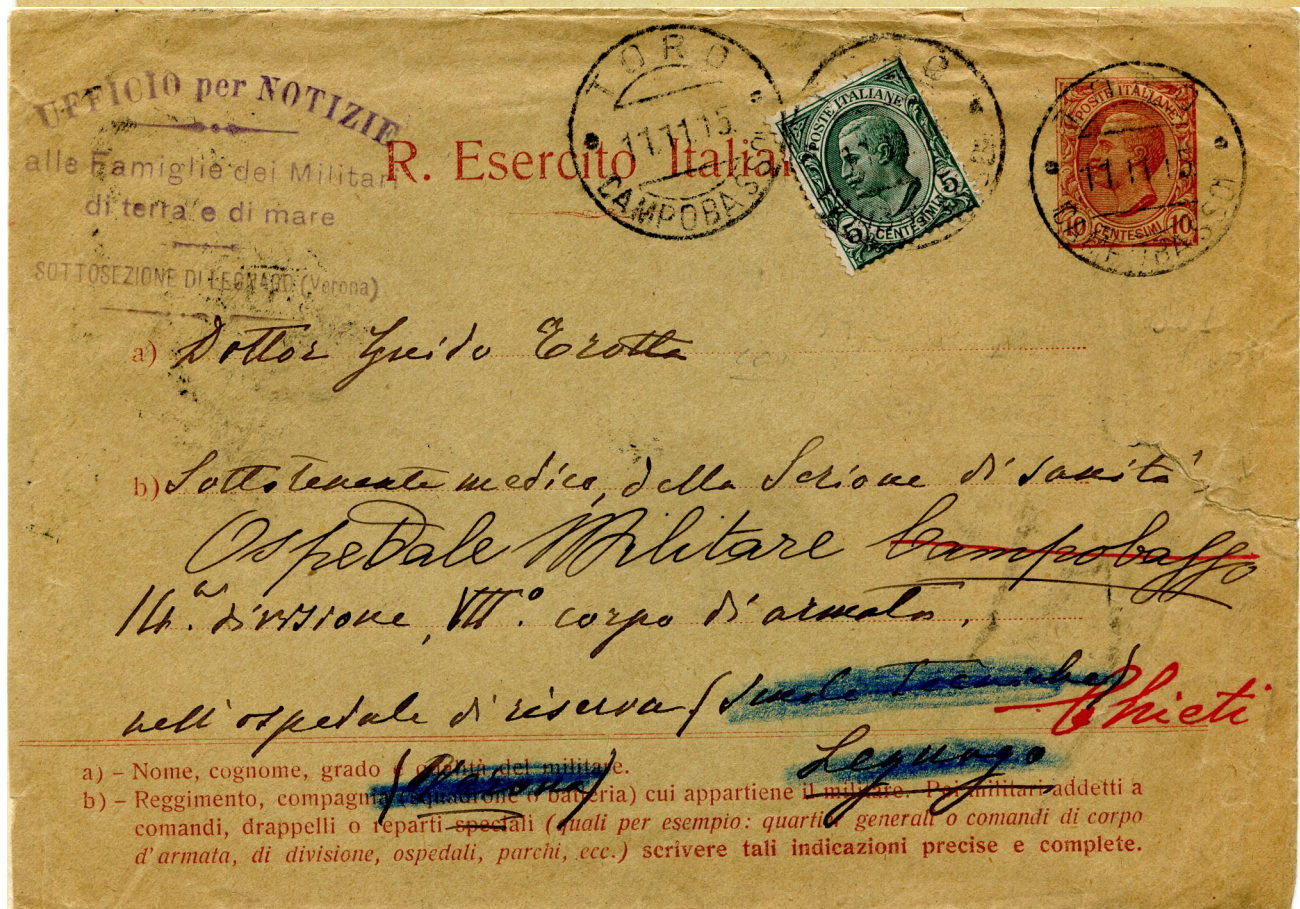 UFFICIO per NOTIZIE
alle Famiglie dei Militari
di terra e di mare
SOTTOSEZIONE DI LEGNAGO (Verona)
R. Esercito Italian
TORO
11.11.15
CAMPOBASSO
POSTE ITALIANE
5 CENTESIMI 5
POSTE ITALIANE
10 CENTESIMI 10
11.11.15
a) Dottor Guido Trotta
b) Sottotenente medico, della Sezione di sanità
Ospedale Militare Campobasso
14.a divisione, VII.o corpo di armata,
nell'ospedale di riserva (Scuole Tecniche)
Chieti
Legnago
(Verona)
a) – Nome, cognome, grado e qualità del militare.
b) – Reggimento, compagnia (squadrone o batteria) cui appartiene il militare. Pei militari addetti a
comandi, drappelli o reparti speciali (quali per esempio: quartieri generali o comandi di corpo
d'armata, di divisione, ospedali, parchi, ecc.) scrivere tali indicazioni precise e complete.